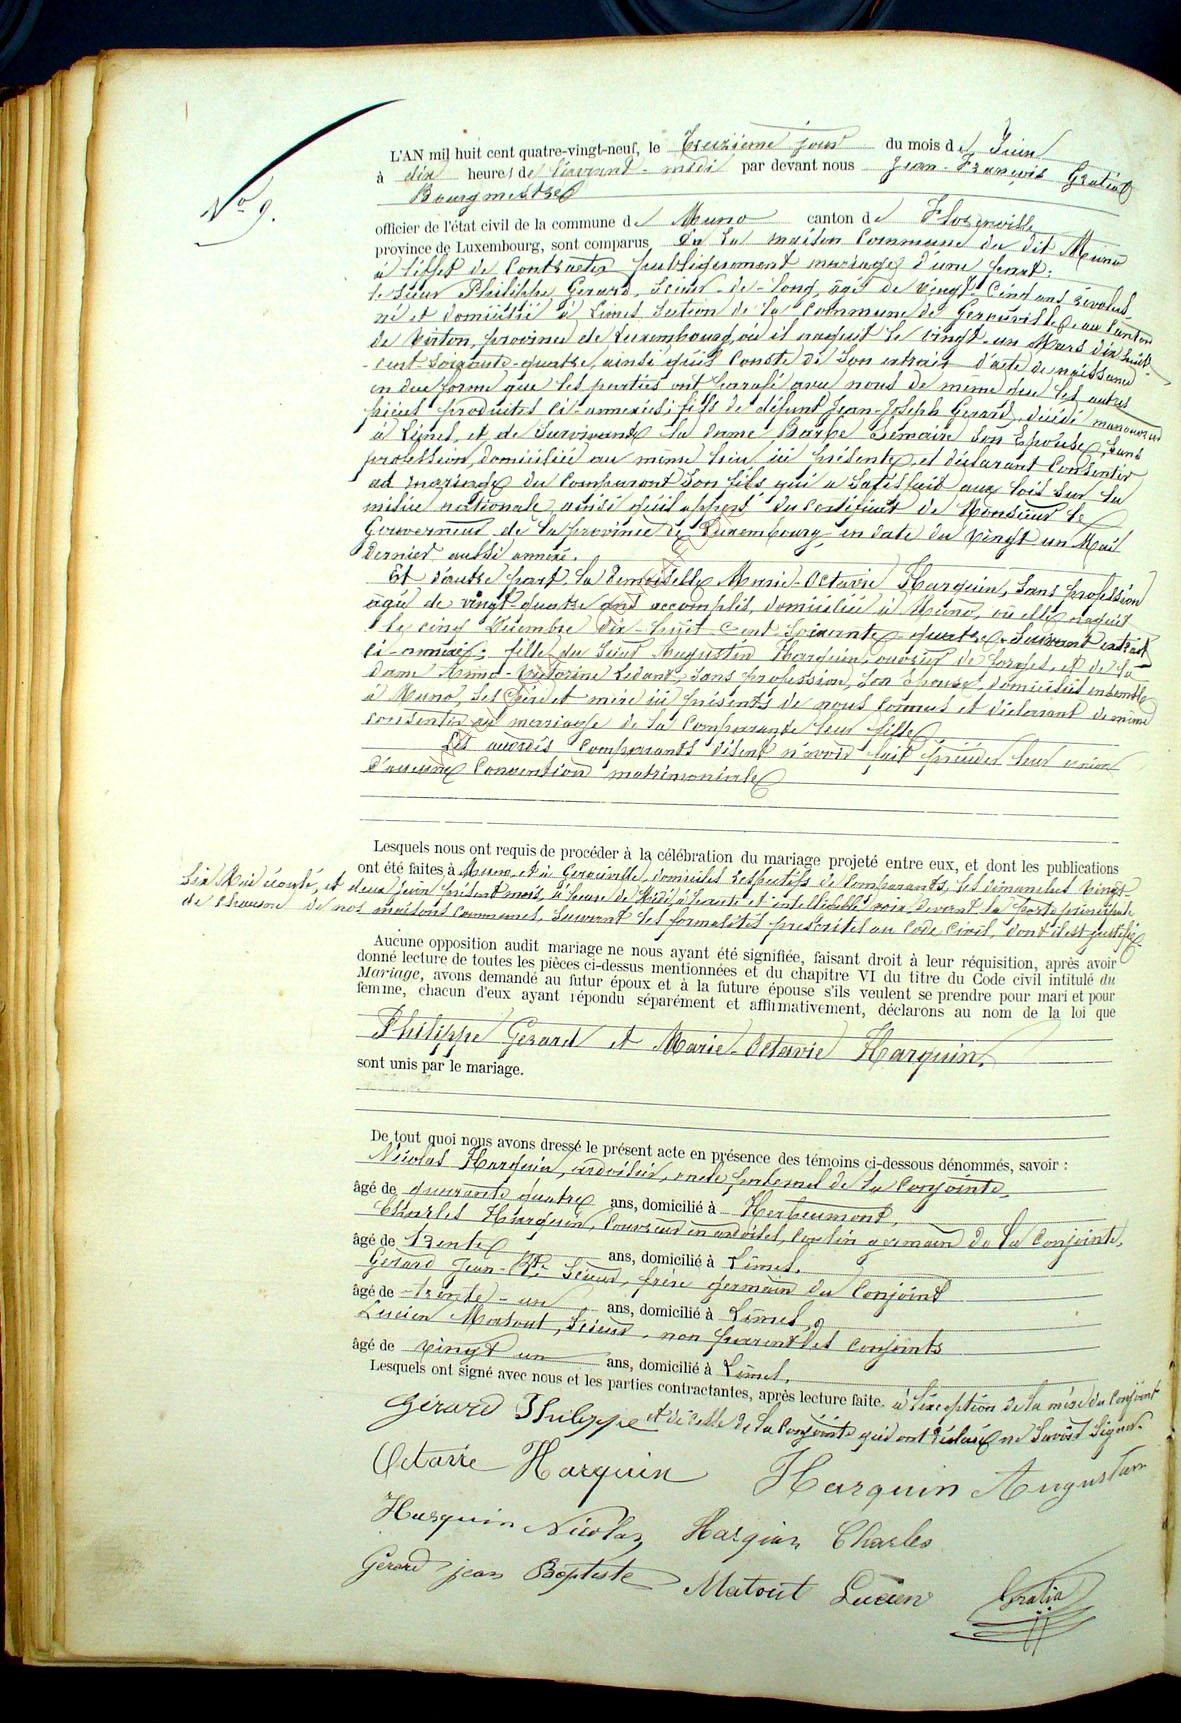 N° 9.
L'AN mil huit cent quatre-vingt-neuf, le treizième jour du mois de Juin
à dix heures de l'avant-midi par devant nous Jean-François Gratia
Bourgmestre
officier de l'état civil de la commune de Muno canton de Florenville
province de Luxembourg, sont comparus en la maison Commune du dit Muno
à l'effet de Contracter publiquement mariage d'une part:
le sieur Philippe Gerard, Scieur-de-long, âgé de vingt-cinq ans révolus
né et domicilié à Limes, Section de la Commune de Gerouville, au Canton
de Virton, province de Luxembourg, où il naquit le vingt-un Mars dix-huit-
cent-soixante-quatre, ainsi qu'il Conste de Son extrait d'acte de naissance
en due forme que les parties ont paraphé avec nous de même que les autres
pièces produites ci-annexées; fils de défunt Jean-Joseph Gerard, décédé manouvrier
à Limes, et de Survivante la dame Barbe Lemaire Son Epouse, Sans
profession, domiciliée au même lieu ici présente, et déclarant Consentir
au mariage du Comparant Son fils qui a Satisfait aux lois Sur la
milice nationale, ainsi qu'il appert du Certificat de Monsieur le
Gouverneur de la province de Luxembourg en date du vingt un Mai
dernier aussi annexé.
Et d'autre part la Demoiselle Marie-Octavie Harquin, Sans profession
âgée de vingt-quatre ans accomplis, domiciliée à Muno, où elle naquit
le cinq Décembre dix-huit-cent-Soixante-quatre, Suivant extrait
ci-annexé; fille du Sieur Augustin Harquin, ouvrier de forges, et de la
dame Anne-Victorine Ledant, Sans profession, Son Epouse, domiciliés ensemble
à Muno, Ses père et mère ici présents de nous Connus et déclarant de même
consentir au mariage de la Comparante leur fille.
Les susdits Comparants disent n'avoir fait précéder leur union
d'aucune Convention matrimoniale
Lesquels nous ont requis de procéder à la célébration du mariage projeté entre eux, et dont les publications
ont été faites à Muno, et à Gerouville, domiciles respectifs de Comparants, les dimanches vingt
Six Mai écoulé, et deux Juin présent mois, à l'heure de Midi, à haute et intelligible voix, devant la porte principale
de chacune de nos maisons Communes, Suivant les formalités prescrites au Code Civil, dont il est justifié.
Aucune opposition audit mariage ne nous ayant été signifiée, faisant droit à leur réquisition, après avoir
donné lecture de toutes les pièces ci-dessus mentionnées et du chapitre VI du titre du Code civil intitulé du
Mariage, avons demandé au futur époux et à la future épouse s'ils veulent se prendre pour mari et pour
femme, chacun d'eux ayant répondu séparément et affirmativement, déclarons au nom de la loi que
Philippe Gerard et Marie-Octavie Harquin.
sont unis par le mariage.
De tout quoi nous avons dressé le présent acte en présence des témoins ci-dessous dénommés, savoir :
Nicolas Harquin, ardoisier, oncle paternel de la Conjointe,
âgé de quarante quatre ans, domicilié à Herbeumont,
Charles Harquin, Couvreur en ardoises, Cousin germain de la Conjointe,
âgé de trente ans, domicilié à Limes,
Gerard Jean-Bte Scieur, frère germain du Conjoint
âgé de trente-un ans, domicilié à Limes,
Lucien Matout, Scieur, non parent des Conjoints
âgé de vingt un ans, domicilié à Limes.
Lesquels ont signé avec nous et les parties contractantes, après lecture faite. à l'exception de la mère du Conjoint
et de celle de la Conjointe qui ont déclaré ne Savoir Signer.
Gérard Philippe
Octavie Harquin Harquin Augustin
Harquin Nicolas Harquin Charles
Gérard jean Baptiste Matout Lucien Gratia